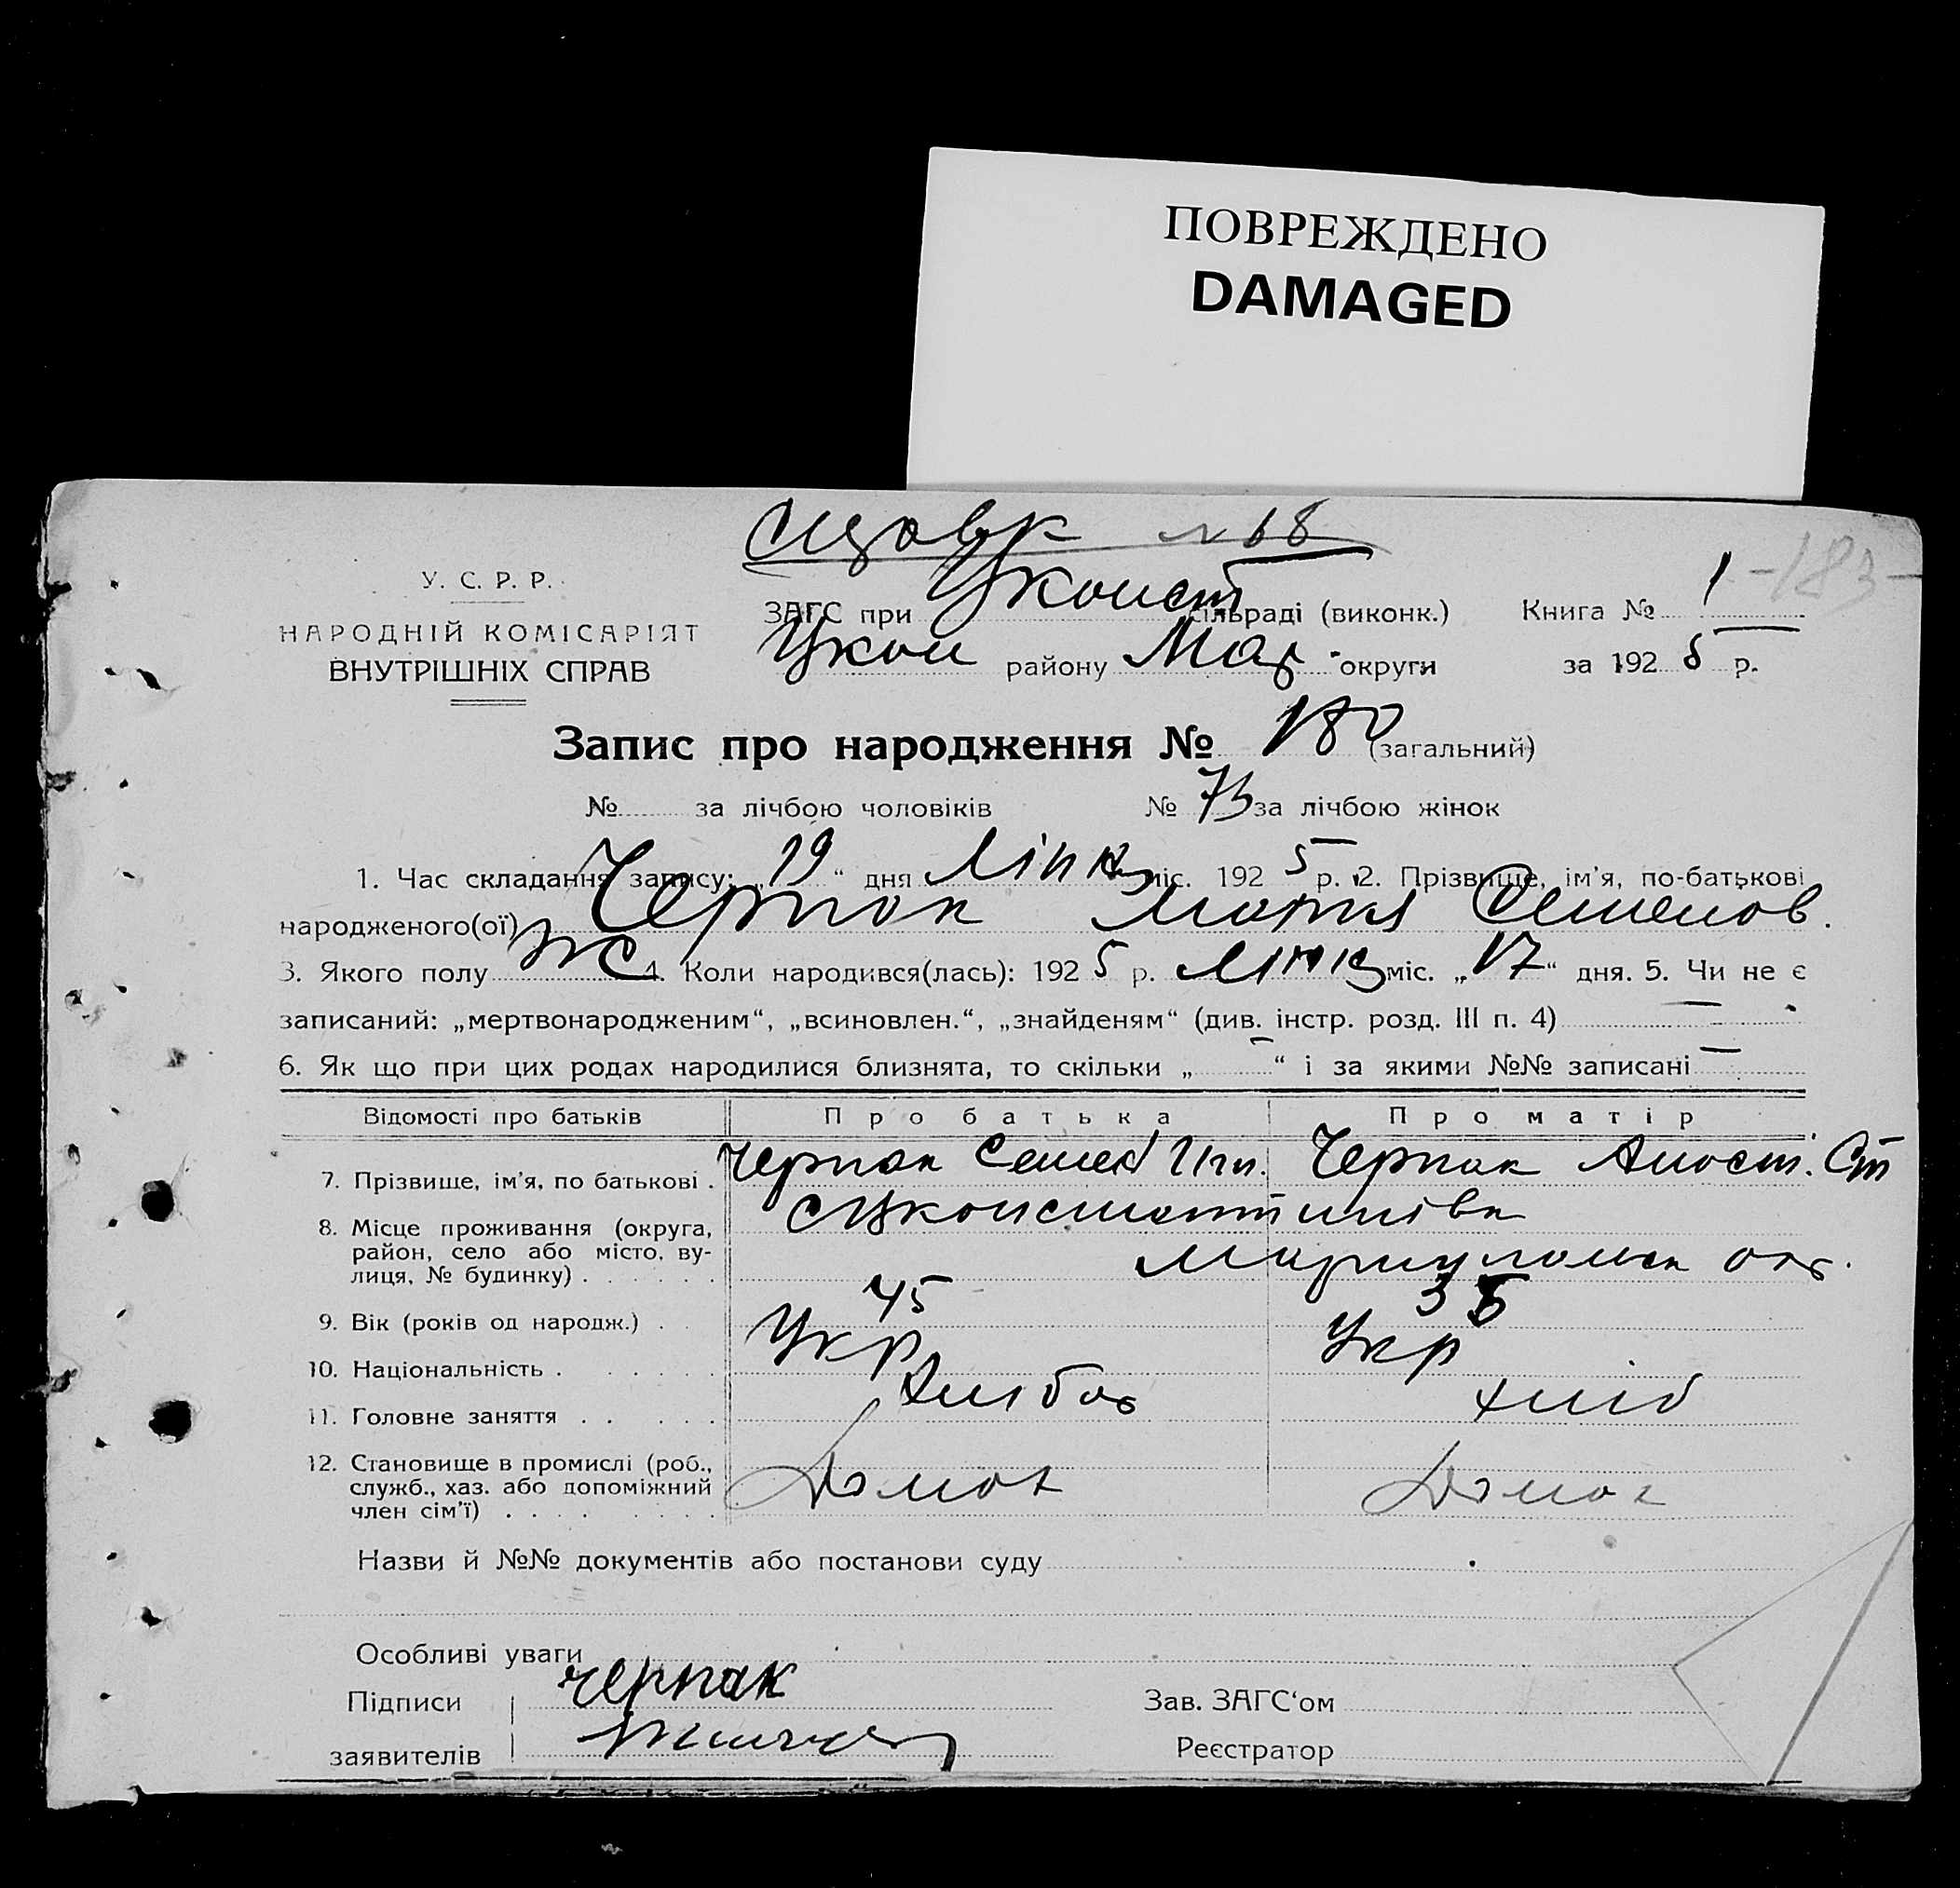 ПОВРЕЖДЕНО
DAMAGED
№ 68
-183-
У. С. Р. Р.
НАРОДНІЙ КОМІСАРІЯТ
ВНУТРІШНІХ СПРАВ
ЗАГС при Цконст сільраді (виконк.) Книга № 1
Цкон району Мар. округи за 1925 р.
Запис про народження № 180 (загальний)
№ за лічбою чоловіків № 73 за лічбою жінок
1. Час складання запису: „19“ дня Ліпня міс. 1925 р. 2. Прізвище, ім'я, по-батькові
народженого(ої) Черпак Мария Семенов.
3. Якого полу Ж 4. Коли народився(лась): 1925 р. Ліпня міс. „17“ дня. 5. Чи не є
записаний: „мертвонародженим“, „всиновлен.“, „знайденям“ (див. інстр. розд. III п. 4) —
6. Як що при цих родах народилися близнята, то скільки „—“ і за якими №№ записані —
Відомості про батьків Про батька Про матір
7. Прізвище, ім'я, по батькові . Черпак Семен Игн. Черпак Анаст. Ст
8. Місце проживання (округа, район, село або місто, вулиця, № будинку) . . . . . . с Цконстантинівка
Мариупольск окр.
9. Вік (років од народж.) . . 45 35
10. Національність . . . . . . Укр Укр
11. Головне заняття . . . . . Хлібор хліб
12. Становище в промислі (роб.,
служб., хаз. або допоміжний
член сім'ї) . . . . . . . .
Назви й №№ документів або постанови суду
Особливі уваги
Підписи Черпак Зав. ЗАГС'ом
заявителів Реєстратор